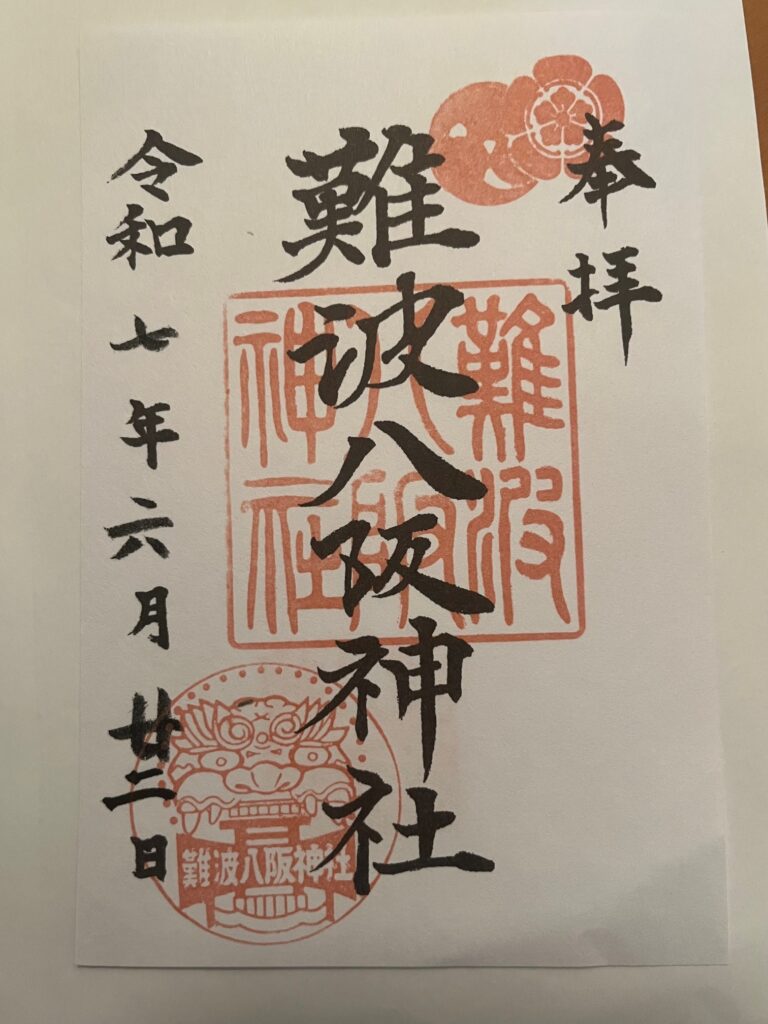 奉拝
難波八阪神社
難波八阪神社
令和七年六月廿二日
難波八阪神社